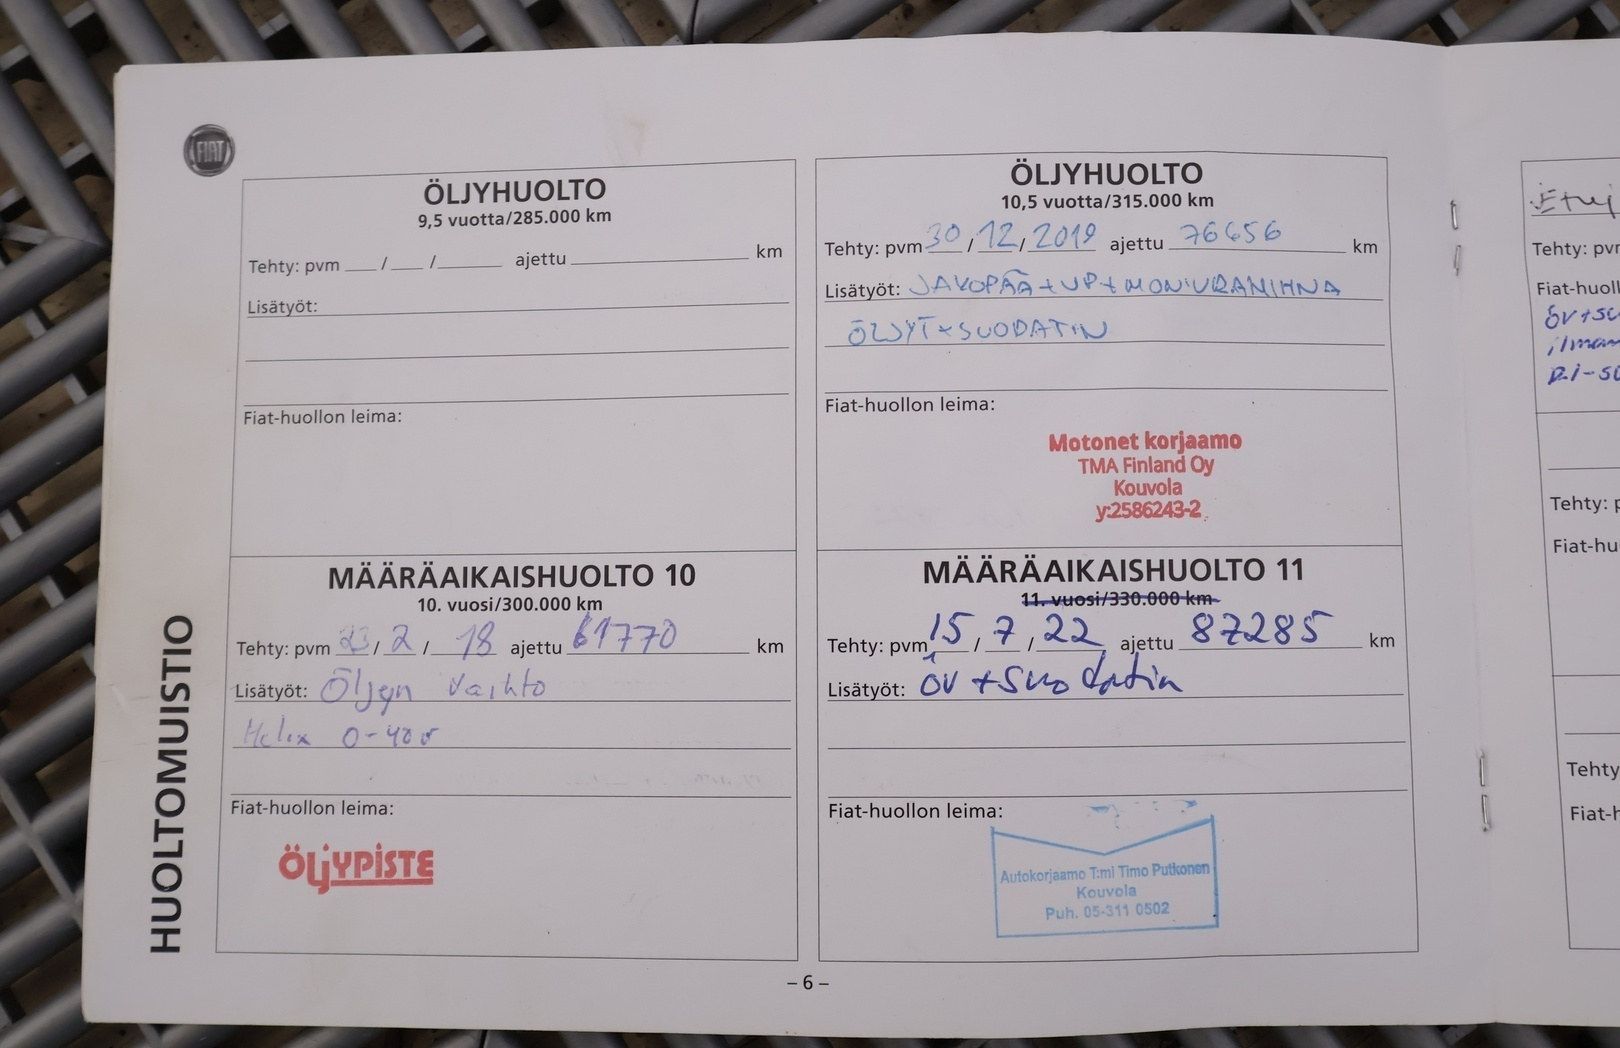 FIAT
ÖLJYHUOLTO
9,5 vuotta/285.000 km
Tehty: pvm ___ /___ /______ ajettu ______________ km
Lisätyöt:
Fiat-huollon leima:
MÄÄRÄAIKAISHUOLTO 10
10. vuosi/300.000 km
Tehty: pvm 23 / 2 / 18 ajettu 61770 km
Lisätyöt: Öljyn vaihto
Helix 0-40
Fiat-huollon leima:
ÖLJYPISTE
ÖLJYHUOLTO
10,5 vuotta/315.000 km
Tehty: pvm 30 / 12 / 2019 ajettu 76656 km
Lisätyöt: JAKOPÄÄ + VP + MONIURAHIHNA
ÖLJYT + SUODATIN
Fiat-huollon leima:
Motonet korjaamo
TMA Finland Oy
Kouvola
y:2586243-2
MÄÄRÄAIKAISHUOLTO 11
11. vuosi/330.000 km
Tehty: pvm 15 / 7 / 22 ajettu 87285 km
Lisätyöt: öv + suodatin
Fiat-huollon leima:
Autokorjaamo T:mi Timo Putkonen
Kouvola
Puh. 05-311 0502
HUOLTOMUISTIO
– 6 –
Tehty: pvm
Fiat-huoll
öv + su
ilman
Tehty: p
Fiat-hu
Tehty
Fiat-h